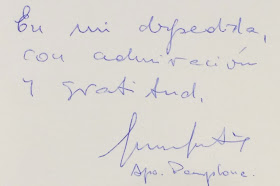 En mi despedida,
con admiración
y gratitud.
Apo. Pamplona.